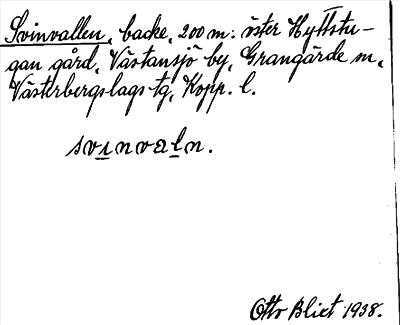 Svinvallen, backe, 200 m. öster Hyttstu-
gan gård, Västansjö by, Grangärde sn,
Västerbergslags tg, Kopp. l.
svinvaln.
Otto Blixt 1938.